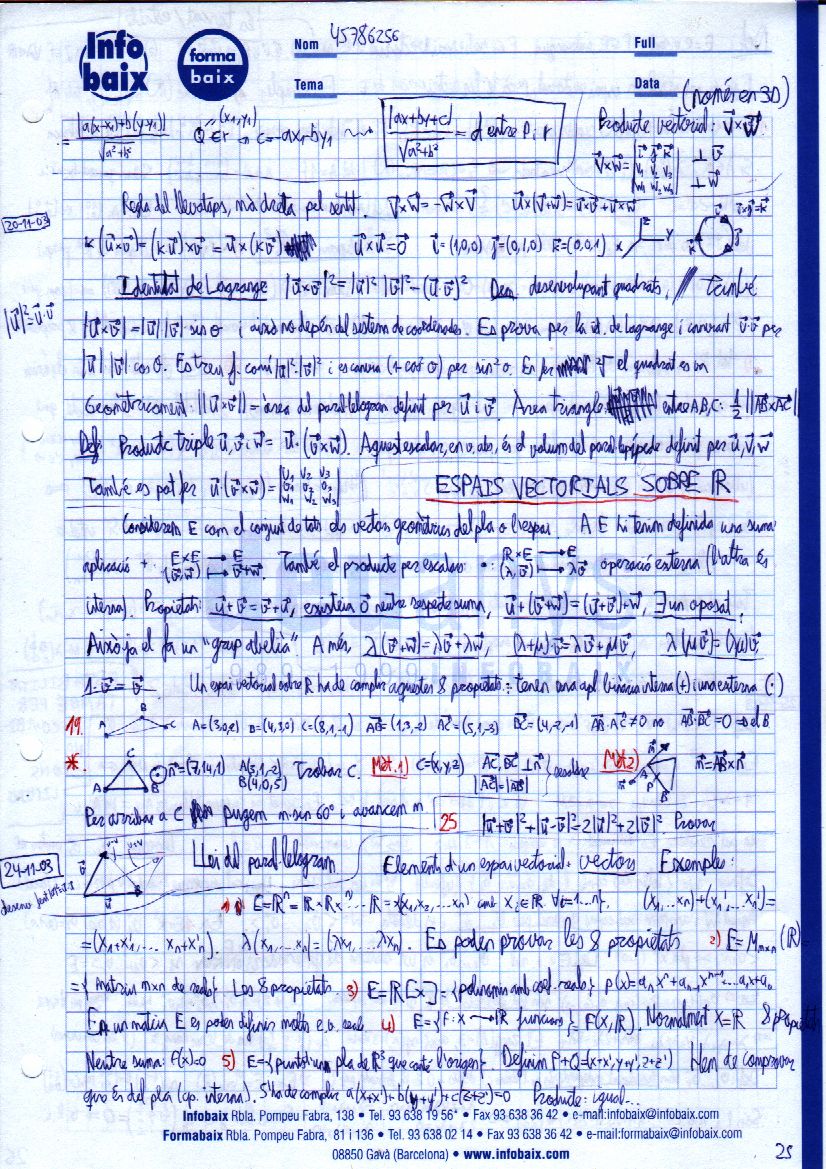 Info baix
forma baix
Nom 45786256
Full
Tema
Data
(només en 3D)
= |a(x-x₁)+b(y-y₁)| / √(a²+b²) Q∈r ⇒ c=-ax₁-by₁ ⇝ |ax+by+c| / √(a²+b²) = d entre P i r
(x₁,y₁)
Producte vectorial: v⃗×w⃗
v⃗×w⃗ = |i⃗ j⃗ k⃗ / v₁ v₂ v₃ / w₁ w₂ w₃| ⊥v⃗ ⊥w⃗
20-11-03
Regla del llevataps, mà dreta pel sentit. v⃗×w⃗=-w⃗×v⃗ u⃗×(v⃗+w⃗)=u⃗×v⃗+u⃗×w⃗
i⃗×j⃗=k⃗
k(u⃗×v⃗)=(ku⃗)×v⃗=u⃗×(kv⃗) u⃗×u⃗=0⃗ i⃗=(1,0,0) j⃗=(0,1,0) k⃗=(0,0,1) x y z i⃗ j⃗ k⃗
Identitat de Lagrange |u⃗×v⃗|²=|u⃗|²|v⃗|²-(u⃗·v⃗)² Dem desenvolupant quadrats. // També
|u⃗|²=u⃗·u⃗
|u⃗×v⃗|=|u⃗||v⃗|·sin θ i això no depèn del sistema de coordenades. Es prova per la id. de Lagrange i canviant u⃗·v⃗ per
|u⃗||v⃗|·cos θ. Es treu f. comú |u⃗|²·|v⃗|² i es canvia (1-cos²θ) per sin²θ. En fer √ el quadrat es va
Geomètricament: ||u⃗×v⃗||=àrea del paral·lelogram definit per u⃗ i v⃗. Àrea triangle entre A,B,C: ½||AB×AC||
Def: Producte triple u⃗, v⃗ i w⃗ = u⃗·(v⃗×w⃗). Aquest escalar, en v. abs, és el volum del paral·lepípede definit per u⃗,v⃗,w⃗
També es pot fer u⃗·(v⃗×w⃗)= |u₁ u₂ u₃ / v₁ v₂ v₃ / w₁ w₂ w₃|
ESPAIS VECTORIALS SOBRE ℝ
Considerem E com el conjunt de tots els vectors geomètrics del pla o l'espai. A E hi tenim definida una suma:
aplicació +: E×E → E (v⃗,w⃗) ↦ v⃗+w⃗. També el producte per escalar: •: ℝ×E → E (λ,v⃗) ↦ λv⃗ operació externa (l'altra és
interna). Propietats: u⃗+v⃗=v⃗+u⃗, existeix 0⃗ neutre respecte suma, u⃗+(v⃗+w⃗)=(u⃗+v⃗)+w⃗, ∃ un oposat.
Això ja el fa un "grup abelià". A més, λ(v⃗+w⃗)=λv⃗+λw⃗, (λ+μ)v⃗=λv⃗+μv⃗, λ(μv⃗)=(λμ)v⃗,
1·v⃗=v⃗ Un espai vectorial sobre ℝ ha de complir aquestes 8 propietats i tenen una apl. binària interna (+) i una externa (·)
19. A B C A=(3,0,2) B=(4,3,0) C=(8,1,-1) AB=(1,3,-2) AC=(5,1,-3) BC=(4,-2,-1) AB·AC≠0 no AB·BC=0 ⇒ el B
*. A B C n⃗=(7,14,1) A(3,1,-2) B(4,0,5) Trobar C. Mèt.1) C=(x,y,z) AC, BC ⊥n⃗ |AC|=|AB| } resoldre Mèt.2) m⃗=AB×n⃗
Per arribar a C pugem m·sin 60° i avancem m
25 |u⃗+v⃗|²+|u⃗-v⃗|²=2|u⃗|²+2|v⃗|². Provar
24-11-03
Llei del paral·lelogram
Elements d'un espai vectorial: vectors Exemples:
1) E=ℝⁿ=ℝ×ℝ×...ℝ={(x₁,x₂,...xₙ) amb xᵢ∈ℝ ∀i=1...n}. (x₁,...xₙ)+(x₁',...xₙ')=
=(x₁+x₁',...xₙ+xₙ'). λ(x₁,...xₙ)=(λx₁,...λxₙ). Es poden provar les 8 propietats 2) E=Mₘₓₙ(ℝ)
={matrius mxn de reals}. Les 8 propietats. 3) E=ℝ[x]={polinomis amb coef. reals} p(x)=aₙxⁿ+aₙ₋₁xⁿ⁻¹...a₁x+a₀
En un mateix E es poden definir molts e.v. reals. 4) E={f:X→ℝ funcions}=F(X,ℝ). Normalment X=ℝ 8 propietats
Neutre suma: f(x)=0 5) E={punts d'un pla de ℝ³ que conté l'origen}. Definim P+Q=(x+x',y+y',z+z') Hem de comprovar
que és del pla (op. interna). S'ha de complir a(x+x')+b(y+y')+c(z+z')=0 Producte: igual...
Infobaix Rbla. Pompeu Fabra, 138 • Tel. 93 638 19 56* • Fax 93 638 36 42 • e-mail:infobaix@infobaix.com
Formabaix Rbla. Pompeu Fabra, 81 i 136 • Tel. 93 638 02 14 • Fax 93 638 36 42 • e-mail:formabaix@infobaix.com
08850 Gavà (Barcelona) • www.infobaix.com
25